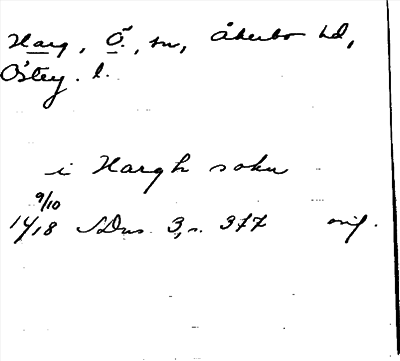 Harg, Ö., sn, Åkerbo hd,
Östg. l.
i Hargh sokn
9/10
1418 SDns 3, s. 377 orig.